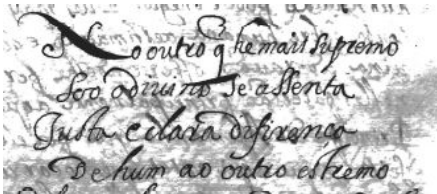 No outro q̃ he mais supremo
Soo a diuino se assenta
Justa e clara difirença
De hum ao outro estremo